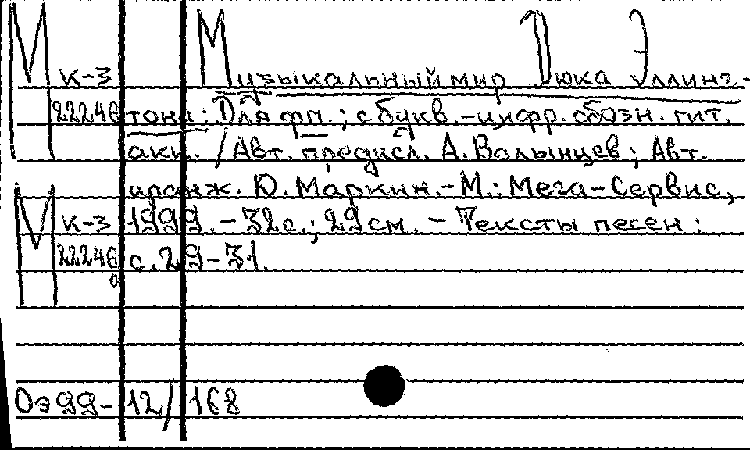 М К-3 Музыкальный мир Дюка Эллинг-
22246 тона: Для фп.; с букв.-цифр. обозн. гит.
акк. / Авт. предисл. А. Волынцев; Авт.
аранж. Ю. Маркин.-М.: Мега-Сервис,
М К-3 1999.-32с.; 29см. - Тексты песен:
22246 с. 29-31.
Оэ 99-12/168